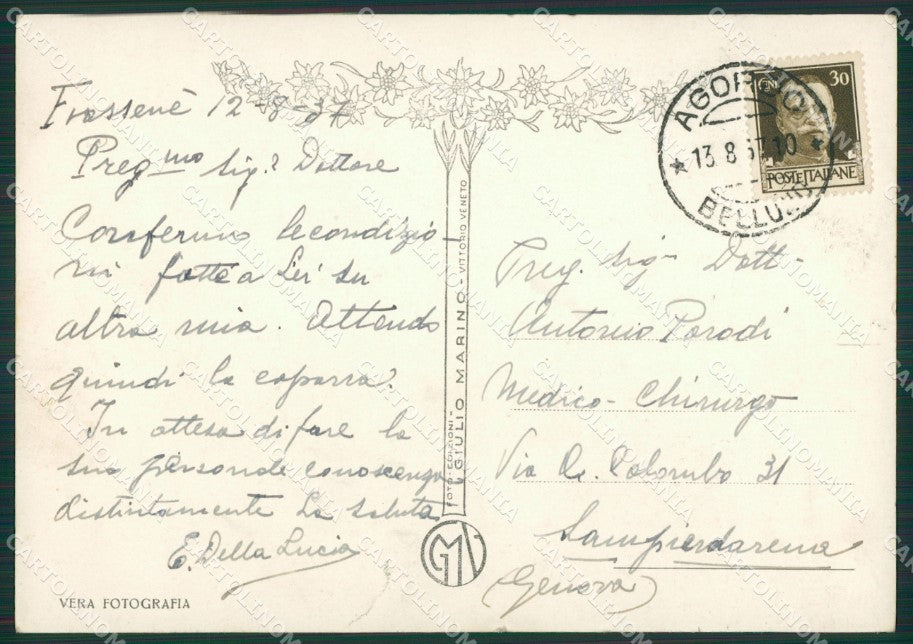 Frassenè 12-8-37
Preg.mo Sig.r Dottore
Confermo le condizio
ni fatte a Lei su
altra mia. Attendo
quindi la caparra.
In attesa di fare la
sua personale conoscenza
distintamente La saluta
E. Della Lucia
VERA FOTOGRAFIA
FOTO-EDIZIONI-
GIULIO MARINO - VITTORIO VENETO
GMV
AGORDO
13.8.37.10
BELLUNO
30
POSTE ITALIANE
Preg. Sig. Dott.
Antonio Parodi
Medico-Chirurgo
Via C. Colombo 31
Sampierdarena
(Genova)
CARTOLINOMANIA